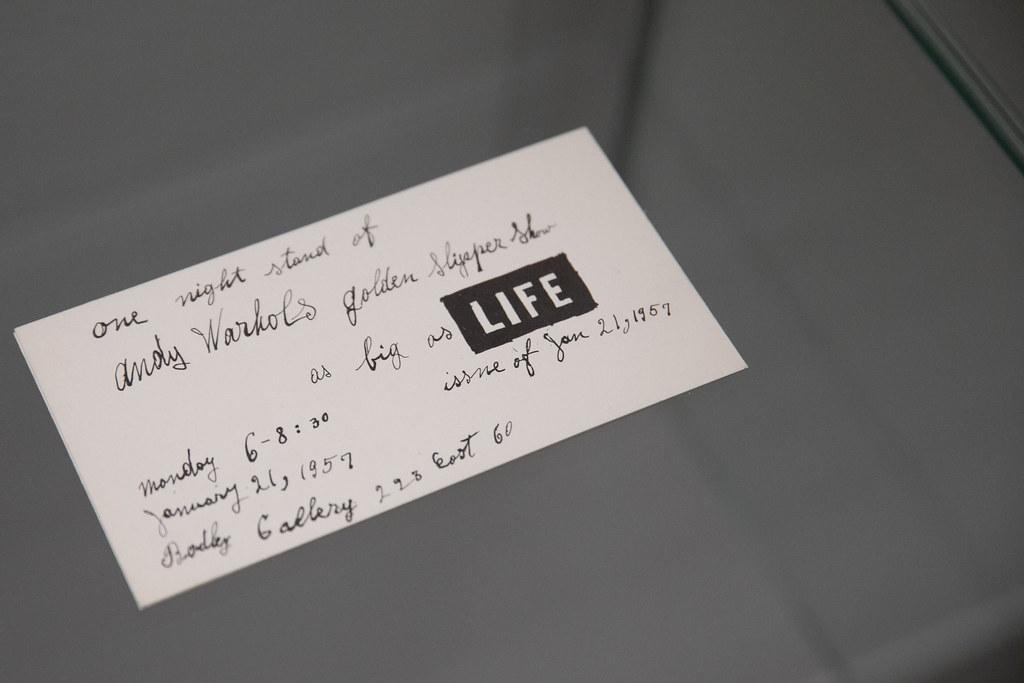 one night stand of
andy Warhols golden slipper show
as big as LIFE
issue of Jan 21, 1957
monday 6-8:30
january 21, 1957
Bodley Gallery 223 East 60